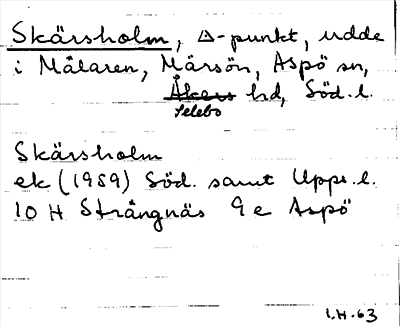 Skärsholm, △-punkt, udde
i Mälaren, Märsön, Aspö sn,
Åkers hd, Söd. l.
Selebo
Skärsholm
ek (1959) Söd. samt Upps. l.
10 H Strängnäs 9 e Aspö
I.H.63